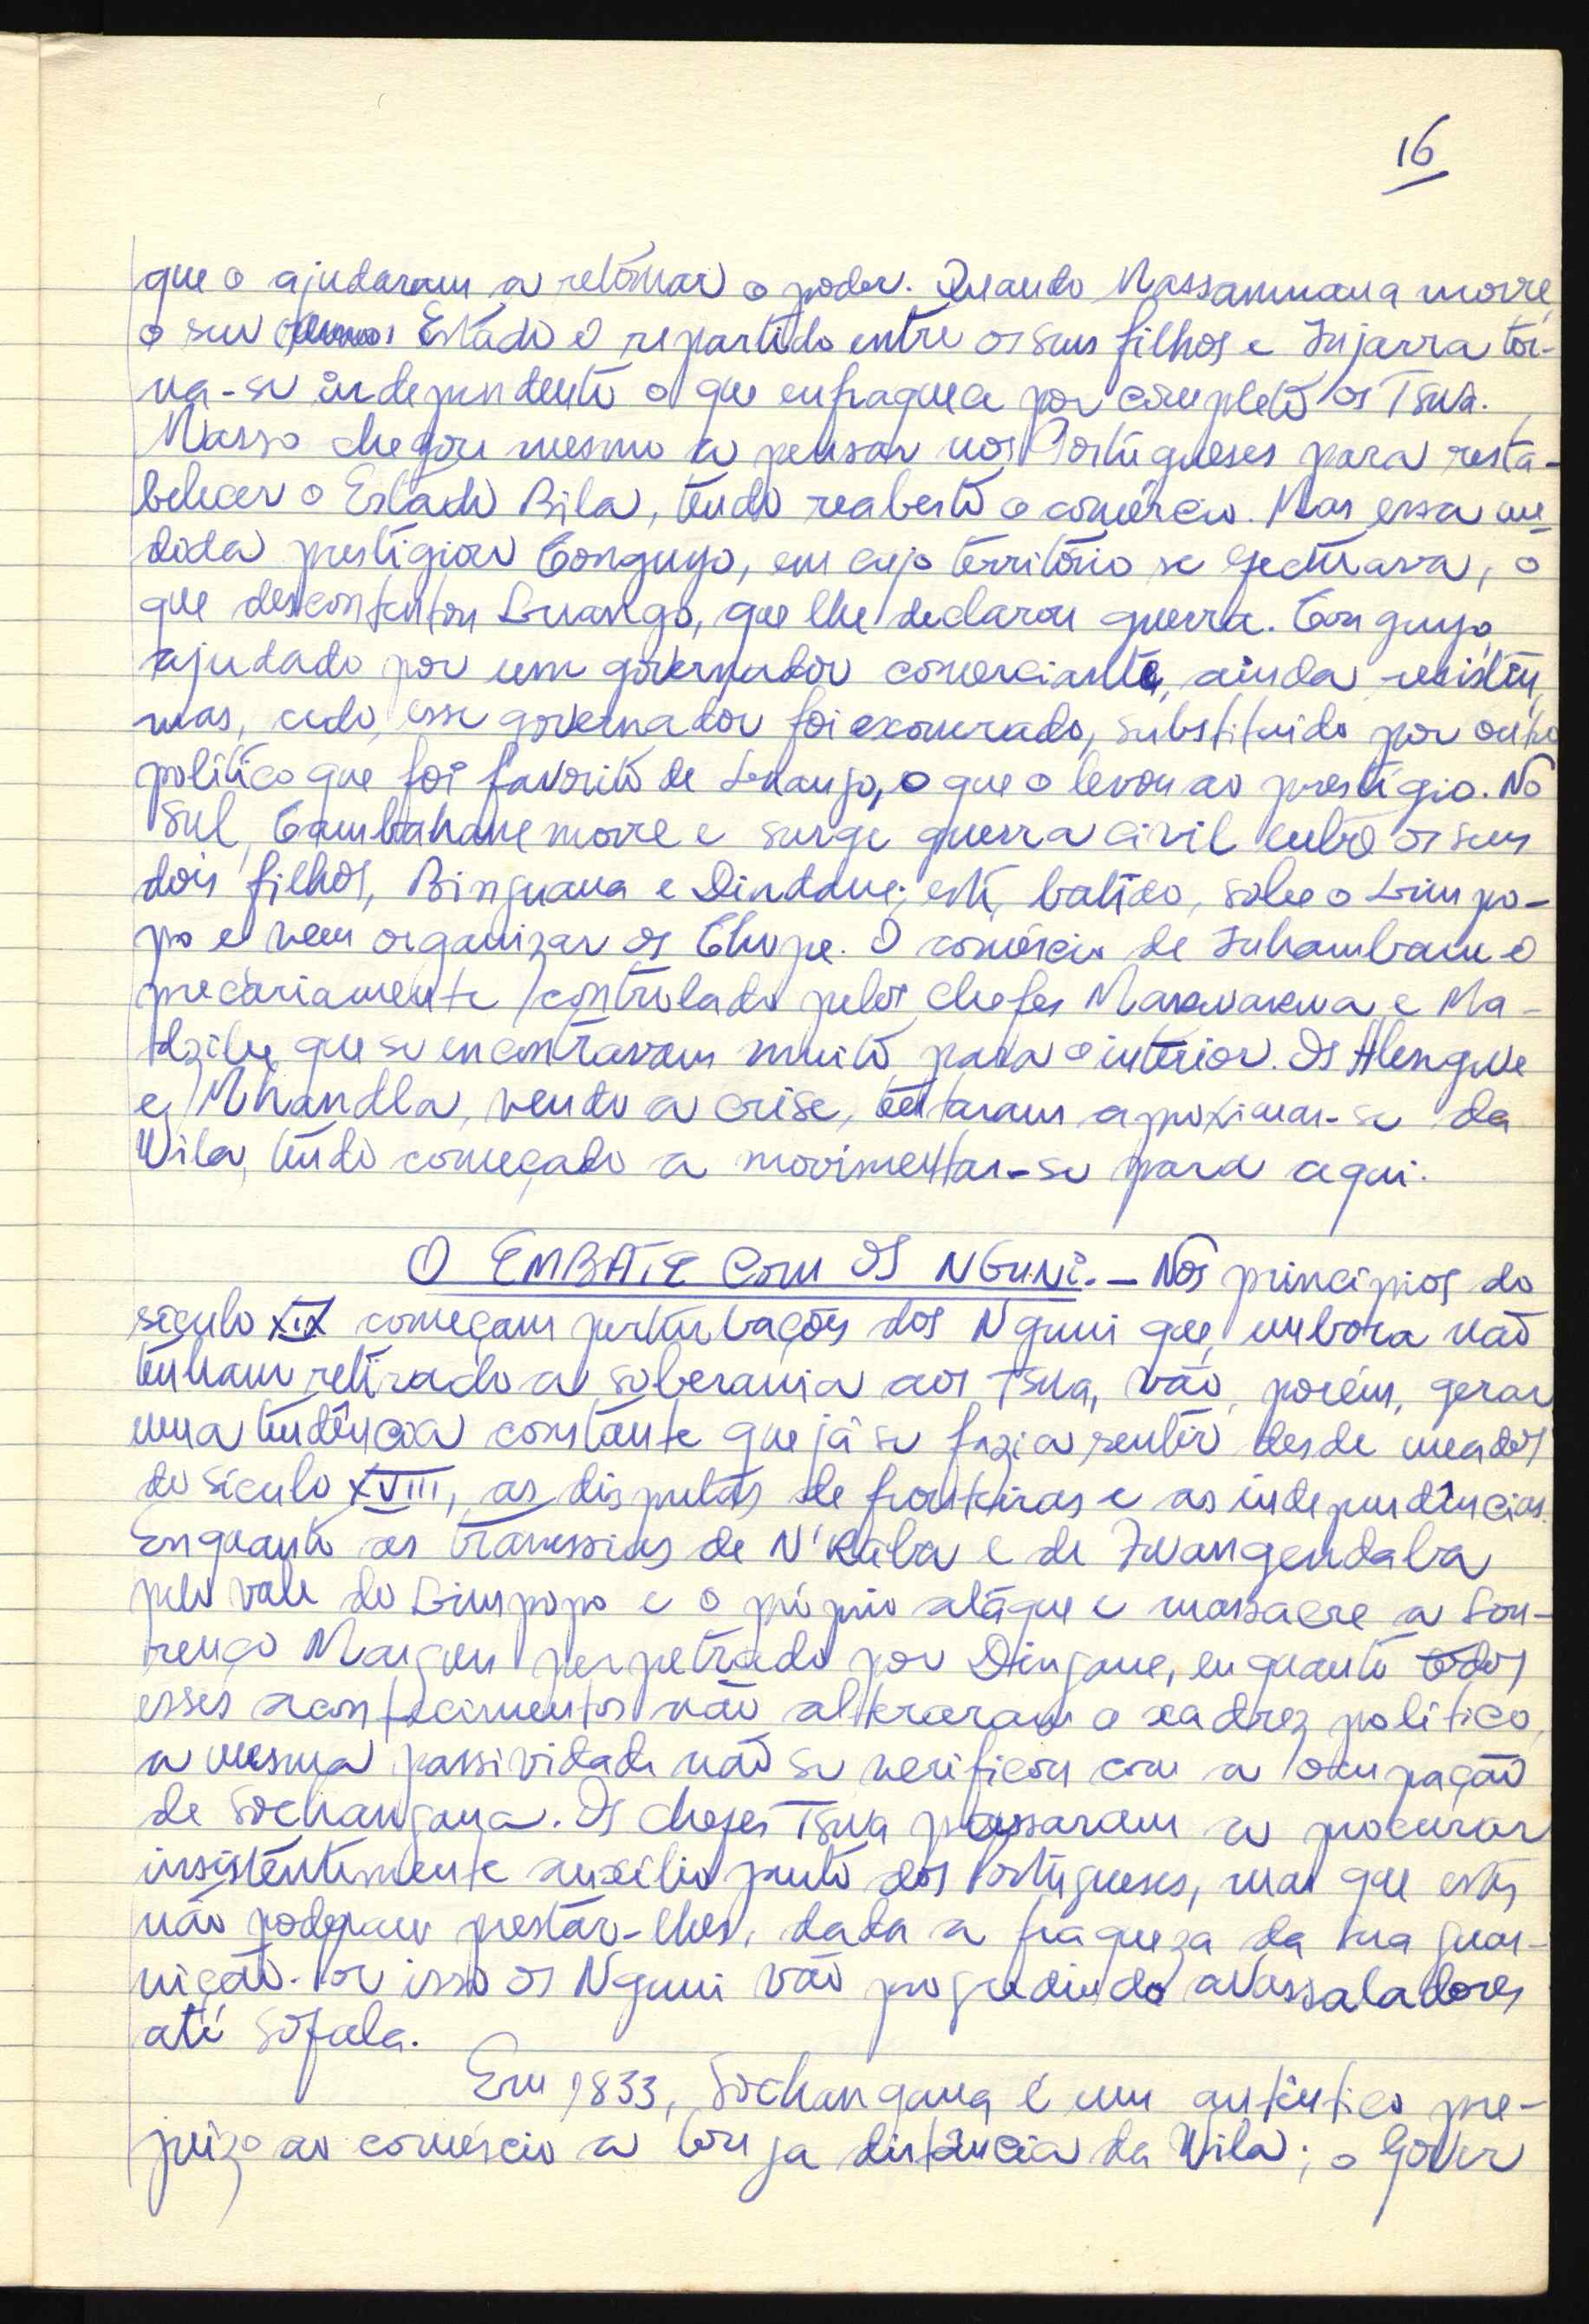 16
que o ajudaram a retomar o poder. Quando Massamuana morre,
o seu Estado é repartido entre os seus filhos e Injarra tor-
na-se independente o que enfraquece por completo os Tswa.
Masso chegou mesmo a pensar nos Portugueses para resta-
belecer o Estado Bila, tendo reaberto o comércio. Mas essa me-
dida prestigiou Conguyo, em cujo território se efectuava, o
que descontentou Luango, que lhe declarou guerra. Conguyo,
ajudado por um governador comerciante, ainda resistiu,
mas, cedo, esse governador foi exonerado, substituido por outro
político que foi favorito de Luango, o que o levou ao prestígio. No
Sul, Cambahane morre e surge guerra civil entre os seus
dois filhos, Binguana e Dindane; este, batido, sobe o Limpo-
po e vem organizar os Chope. O comércio de Inhambane é
precáriamente controlado pelos chefes Makwakwa e Ma-
dzive que se encontravam muito para o interior. Os Hlengwe
e Nhandla, vendo a crise, tentaram aproximar-se da
Vila, tendo começado a movimentar-se para aqui.
O EMBATE COM OS NGUNI. — Nos princípios do
século XIX começam perturbações dos Nguni que, embora não
tenham retirado a soberania aos Tswa, vão, porém, gerar
uma tendência constante que já se fazia sentir desde meados
do século XVIII, as disputas de fronteiras e as independências.
Enquanto as travessias de N'Kaba e de Zwangendaba
pelo vale do Limpopo e o próprio ataque e massacre a Lou-
renço Marques perpetrado por Dingane, enquanto todos
esses acontecimentos não alteraram o xadrez político,
a mesma passividade não se verificou com a ocupação
de Sochangana. Os chefes Tswa passaram a procurar
insistentemente auxílio junto dos Portugueses, mas que estes
não puderam prestar-lhes, dada a fraqueza da sua guar-
nição. Por isso os Nguni vão progredindo avassaladores
até Sofala.
Em 1833, Sochangana é um autêntico pre-
juizo ao comércio a longa distância da Vila; o Gover